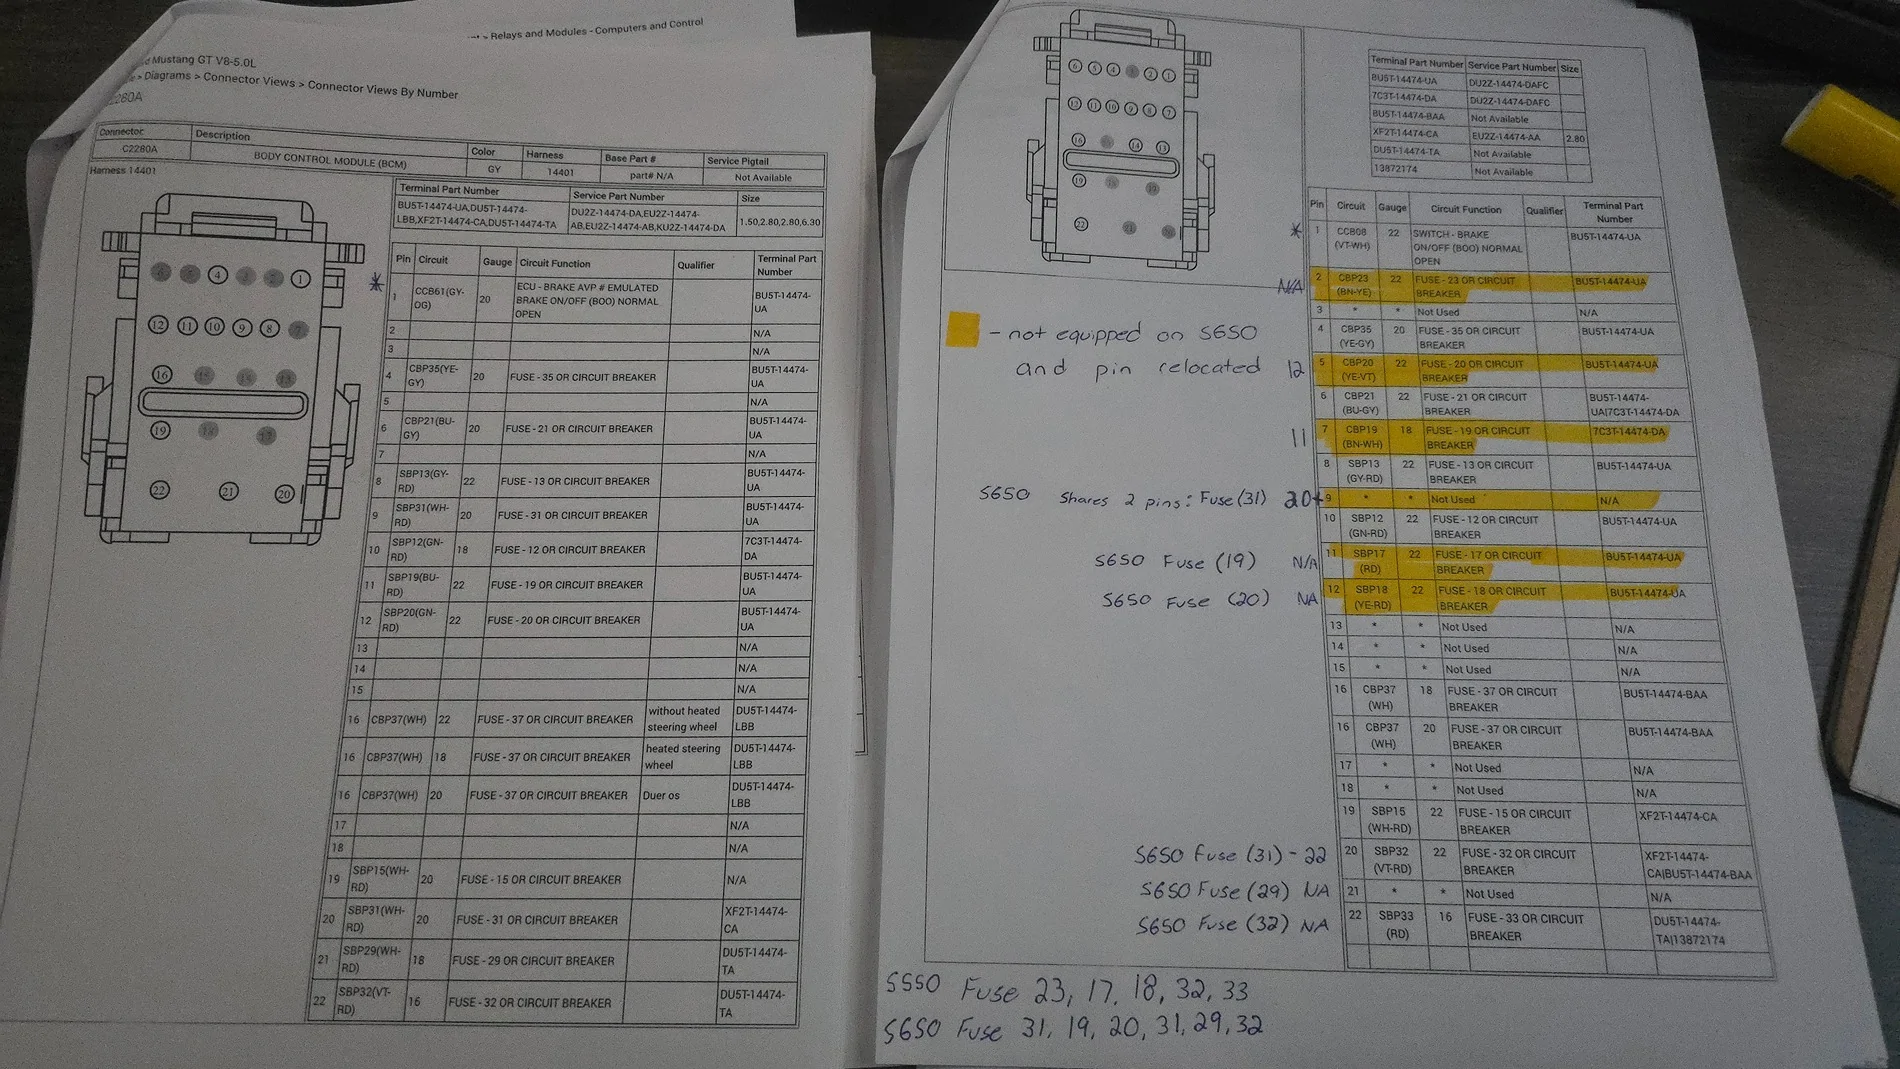 > Relays and Modules - Computers and Control
Mustang GT V8-5.0L
> Diagrams > Connector Views > Connector Views By Number
2280A
Connector: Description Color Harness Base Part # Service Pigtail
C2280A BODY CONTROL MODULE (BCM) GY 14401 part# N/A Not Available
Harness 14401
Terminal Part Number Service Part Number Size
BU5T-14474-UA,DU5T-14474- DU2Z-14474-DA,EU2Z-14474- 1.50,2.80,2.80,6.30
LBB,XF2T-14474-CA,DU5T-14474-TA AB,EU2Z-14474-AB,KU2Z-14474-DA
6 5 4 3 2 1
12 11 10 9 8 7
16 15 14 13
19 18 17
22 21 20
Pin Circuit Gauge Circuit Function Qualifier Terminal Part
Number
* 1 CCB61(GY- 20 ECU - BRAKE AVP # EMULATED BU5T-14474-
OG) BRAKE ON/OFF (BOO) NORMAL UA
OPEN
2 N/A
3 N/A
4 CBP35(YE- 20 FUSE - 35 OR CIRCUIT BREAKER BU5T-14474-
GY) UA
5 N/A
6 CBP21(BU- 20 FUSE - 21 OR CIRCUIT BREAKER BU5T-14474-
GY) UA
7 N/A
8 SBP13(GY- 22 FUSE - 13 OR CIRCUIT BREAKER BU5T-14474-
RD) UA
9 SBP31(WH- 20 FUSE - 31 OR CIRCUIT BREAKER BU5T-14474-
RD) UA
10 SBP12(GN- 18 FUSE - 12 OR CIRCUIT BREAKER 7C3T-14474-
RD) DA
11 SBP19(BU- 22 FUSE - 19 OR CIRCUIT BREAKER BU5T-14474-
RD) UA
12 SBP20(GN- 22 FUSE - 20 OR CIRCUIT BREAKER BU5T-14474-
RD) UA
13 N/A
14 N/A
15 N/A
16 CBP37(WH) 22 FUSE - 37 OR CIRCUIT BREAKER without heated DU5T-14474-
steering wheel LBB
16 CBP37(WH) 18 FUSE - 37 OR CIRCUIT BREAKER heated steering DU5T-14474-
wheel LBB
16 CBP37(WH) 20 FUSE - 37 OR CIRCUIT BREAKER Duer os DU5T-14474-
LBB
17 N/A
18 N/A
19 SBP15(WH- 20 FUSE - 15 OR CIRCUIT BREAKER N/A
RD)
20 SBP31(WH- 20 FUSE - 31 OR CIRCUIT BREAKER XF2T-14474-
RD) CA
21 SBP29(WH- 18 FUSE - 29 OR CIRCUIT BREAKER DU5T-14474-
RD) TA
22 SBP32(VT- 16 FUSE - 32 OR CIRCUIT BREAKER DU5T-14474-
RD) TA
6 5 4 3 2 1
12 11 10 9 8 7
16 15 14 13
19 18 17
22 21 20
Terminal Part Number Service Part Number Size
BU5T-14474-UA DU2Z-14474-DAFC
7C3T-14474-DA DU2Z-14474-DAFC
BU5T-14474-BAA Not Available
XF2T-14474-CA EU2Z-14474-AA 2.80
DU5T-14474-TA Not Available
13872174 Not Available
Pin Circuit Gauge Circuit Function Qualifier Terminal Part
Number
* 1 CCB08 22 SWITCH - BRAKE BU5T-14474-UA
(VT-WH) ON/OFF (BOO) NORMAL
OPEN
N/A 2 CBP23 22 FUSE - 23 OR CIRCUIT BU5T-14474-UA
(BN-YE) BREAKER
3 * * Not Used N/A
4 CBP35 20 FUSE - 35 OR CIRCUIT BU5T-14474-UA
(YE-GY) BREAKER
- not equipped on S650
and pin relocated
12 5 CBP20 22 FUSE - 20 OR CIRCUIT BU5T-14474-UA
(YE-VT) BREAKER
6 CBP21 22 FUSE - 21 OR CIRCUIT BU5T-14474-
(BU-GY) BREAKER UA|7C3T-14474-DA
11 7 CBP19 18 FUSE - 19 OR CIRCUIT 7C3T-14474-DA
(BN-WH) BREAKER
8 SBP13 22 FUSE - 13 OR CIRCUIT BU5T-14474-UA
(GY-RD) BREAKER
S650 Shares 2 pins: Fuse (31) 20+ 9 * * Not Used N/A
10 SBP12 22 FUSE - 12 OR CIRCUIT BU5T-14474-UA
(GN-RD) BREAKER
S650 Fuse (19) N/A 11 SBP17 22 FUSE - 17 OR CIRCUIT BU5T-14474-UA
(RD) BREAKER
S650 Fuse (20) NA 12 SBP18 22 FUSE - 18 OR CIRCUIT BU5T-14474-UA
(YE-RD) BREAKER
13 * * Not Used N/A
14 * * Not Used N/A
15 * * Not Used N/A
16 CBP37 18 FUSE - 37 OR CIRCUIT BU5T-14474-BAA
(WH) BREAKER
16 CBP37 20 FUSE - 37 OR CIRCUIT BU5T-14474-BAA
(WH) BREAKER
17 * * Not Used N/A
18 * * Not Used N/A
19 SBP15 22 FUSE - 15 OR CIRCUIT XF2T-14474-CA
(WH-RD) BREAKER
S650 Fuse (31) - 22 20 SBP32 22 FUSE - 32 OR CIRCUIT XF2T-14474-
(VT-RD) BREAKER CA|BU5T-14474-BAA
S650 Fuse (29) NA 21 * * Not Used N/A
S650 Fuse (32) NA 22 SBP33 16 FUSE - 33 OR CIRCUIT DU5T-14474-
(RD) BREAKER TA|13872174
S550 Fuse 23, 17, 18, 32, 33
S650 Fuse 31, 19, 20, 31, 29, 32